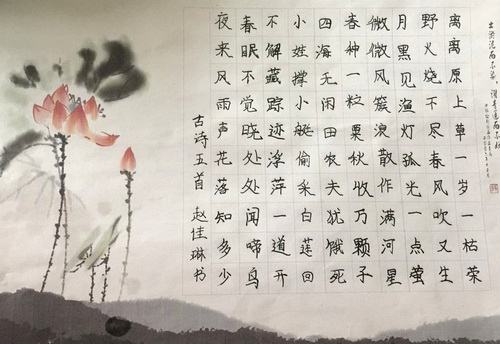 出淤泥而不染，濯清涟而不妖
离离原上草一岁一枯荣
野火烧不尽春风吹又生
月黑见渔灯孤光一点萤
微微风簇浪散作满河星
春种一粒粟秋收万颗子
四海无闲田农夫犹饿死
小娃撑小艇偷采白莲回
不解藏踪迹浮萍一道开
春眠不觉晓处处闻啼鸟
夜来风雨声花落知多少
古诗五首 赵佳琳书